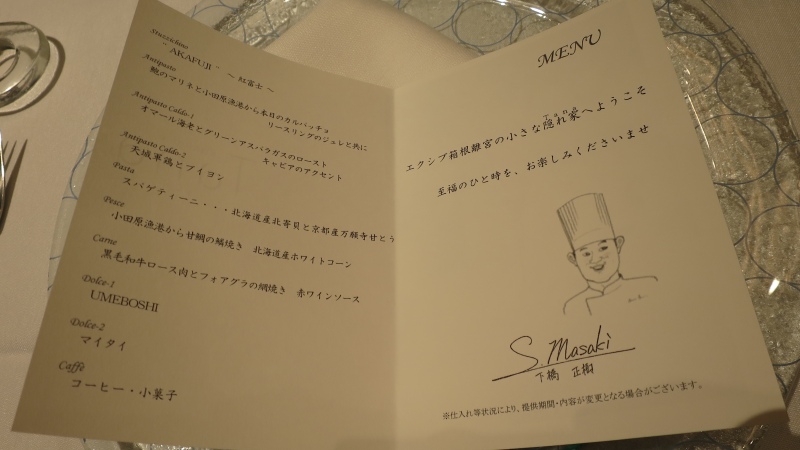 Stuzzichino
"AKAFUJI" ～ 紅富士 ～
Antipasto
鮑のマリネと小田原漁港から本日のカルパッチョ
リースリングのジュレと共に
Antipasto Caldo-1
オマール海老とグリーンアスパラガスのロースト
キャビアのアクセント
Antipasto Caldo-2
天城軍鶏とブイヨン
Pasta
スパゲティーニ・・・北海道産北寄貝と京都産万願寺甘とう
Pesce
小田原漁港から甘鯛の鱗焼き 北海道産ホワイトコーン
Carne
黒毛和牛ロース肉とフォアグラの網焼き 赤ワインソース
Dolce-1
UMEBOSHI
Dolce-2
マイタイ
Caffè
コーヒー・小菓子
MENU
エクシブ箱根離宮の小さな隠れ家へようこそ
至福のひと時を、お楽しみくださいませ
S.Masaki
下橋 正樹
※仕入れ等状況により、提供期間・内容が変更となる場合がございます。